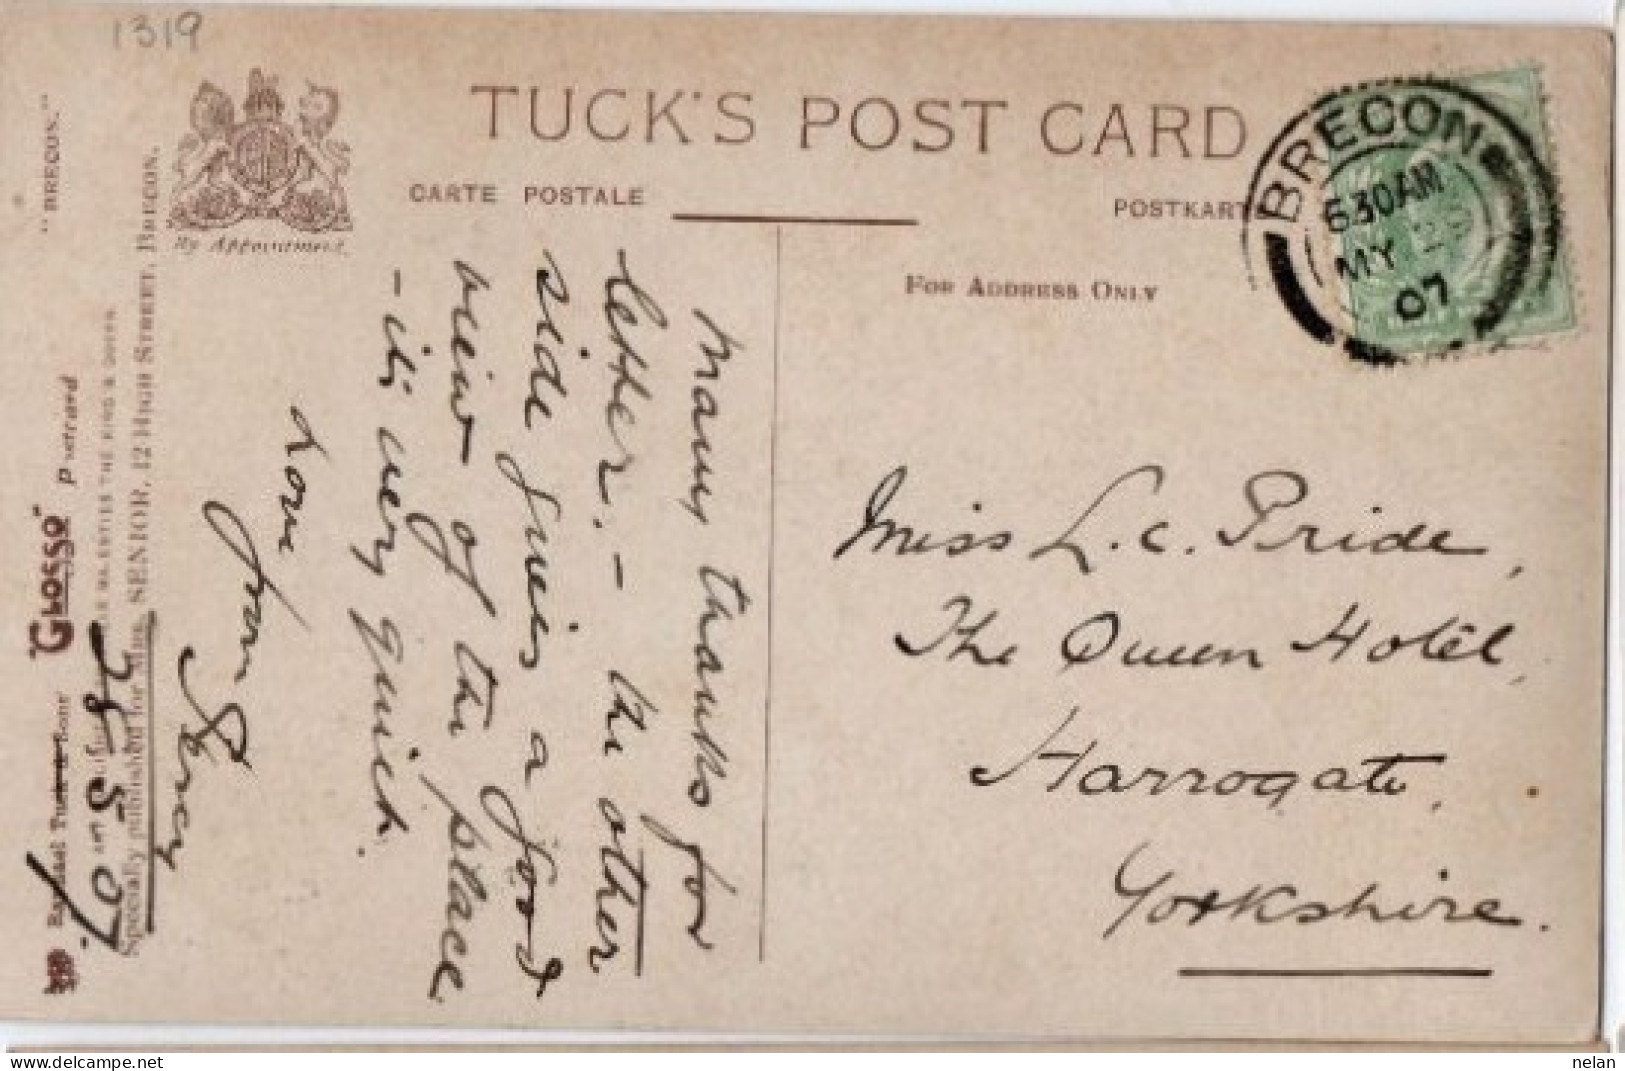 1319
TUCK'S POST CARD
CARTE POSTALE
POSTKART
FOR ADDRESS ONLY
By Appointment.
BRECON
6.30AM
MY 29
07
Miss L.C. Pride,
The Queen Hotel,
Harrogate,
Yorkshire.
Many thanks for
letter. – the other
side gives a good
view of the place
– its very quiet.
Love
from
Percy
28
5
07.
"BRECON."
Specially published for Mrs. SENIOR, 12 HIGH STREET, BRECON.
THE KING & QUEEN
Raphael Tuck & Sons' "GLOSSO" Postcard
nelan